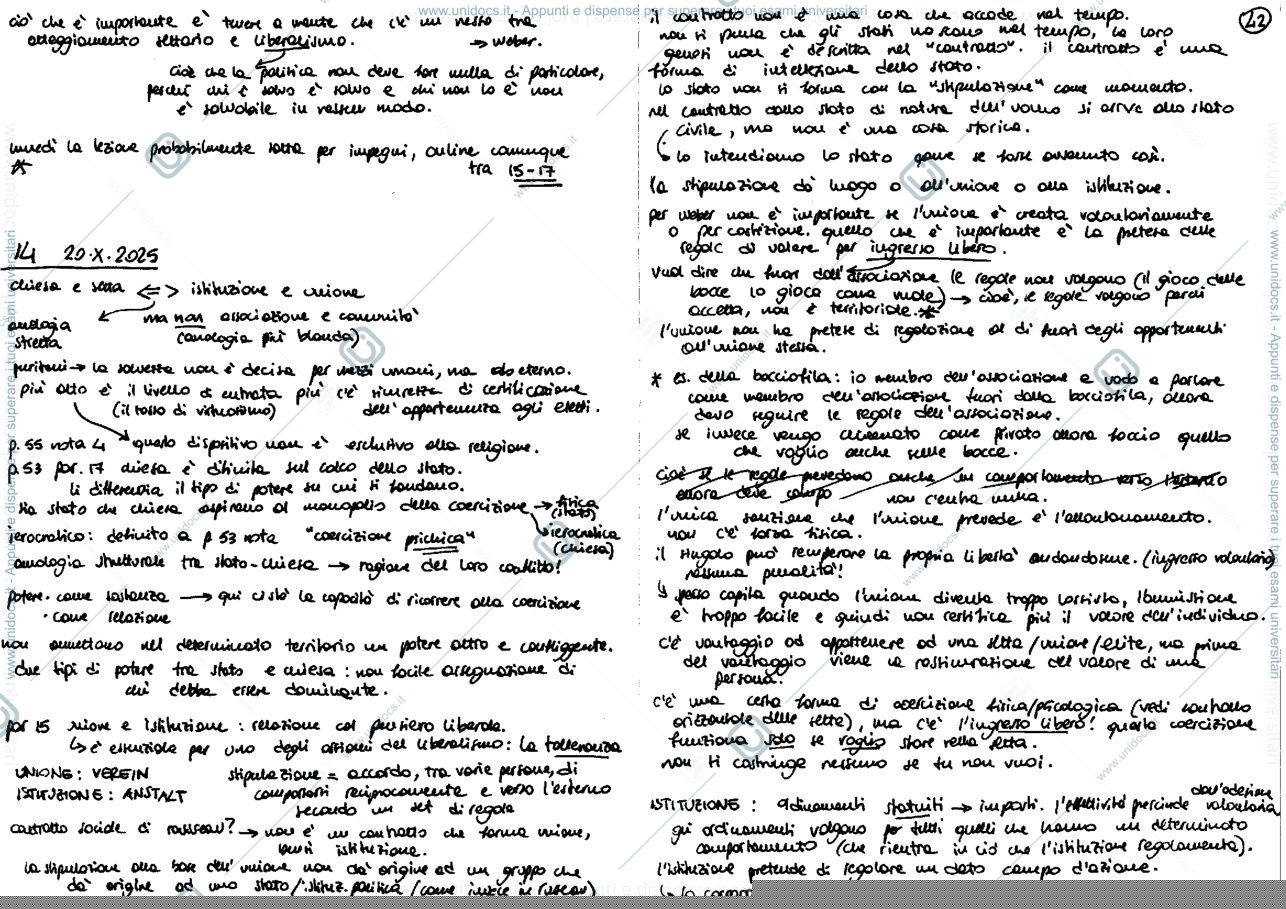 ciò che è importante è tenere a mente che c'è un nesso tra
atteggiamento settario e liberalismo. → Weber.
cioè che la politica non deve fare nulla di particolare,
perché chi è salvo è salvo e chi non lo è non
è salvabile in nessun modo.
lunedì la lezione probabilmente salta per impegni, online comunque
* tra 15-17
14 20.X.2025
chiesa e setta <=> istituzione e unione
ma non associazione e comunità
analogia stretta
(analogia più blanda)
puritani → la salvezza non è decisa per mezzi umani, ma ab eterno.
più alto è il livello di entrata più c'è sicurezza di certificazione
(il tasso di virtuosismo) dell'appartenenza agli eletti.
p.55 nota 4 questo dispositivo non è esclusivo alla religione.
p.53 par. 17 chiesa è definita sul calco dello stato.
li differenzia il tipo di potere su cui si fondano.
sia stato che chiesa aspirano al monopolio della coercizione → fisica
(stato)
ierocratico: definito a p 53 nota "coercizione psichica" ierocratica
(chiesa)
analogia strutturale tra stato-chiesa → ragione del loro conflitto!
potere · come sostanza → qui ci sta la capacità di ricorrere alla coercizione
· come relazione
non ammettono nel determinato territorio un potere altro e confliggente.
due tipi di potere tra stato e chiesa: non facile assegnazione di
chi debba essere dominante.
par 15 unione e istituzione: relazione col pensiero liberale.
↳ è essenziale per uno degli assiomi del liberalismo: la tolleranza
UNIONE: VEREIN stipulazione = accordo, tra varie persone, di
ISTITUZIONE: ANSTALT comportarsi reciprocamente e verso l'esterno
secondo un set di regole
contratto sociale di rousseau? → non è un contratto che forma unione,
bensì istituzione.
la stipulazione alla base dell'unione non dà origine ad un gruppo che
dà origine ad uno stato/istituz. politica (come invece in rousseau)
42
il contratto non è una cosa che accade nel tempo.
non si pensa che gli stati nascono nel tempo, la loro
genesi non è descritta nel "contratto". il contratto è una
forma di intellezione dello stato.
lo stato non si forma con la "stipulazione" come momento.
nel contratto dallo stato di natura dell'uomo si arriva allo stato
civile, ma non è una cosa storica.
↳ lo intendiamo lo stato come se fosse avvenuto così.
la stipulazione dà luogo o all'unione o alla istituzione.
per weber non è importante se l'unione è creata volontariamente
o per costrizione. quello che è importante è la pretesa delle
regole di valere per ingresso libero.
vuol dire che fuori dall'associazione le regole non valgono (il gioco delle
bocce lo gioca come vuole) → cioè, le regole valgono perché
accetta, non è territoriale.*
l'unione non ha pretese di regolazione al di fuori degli appartenenti
all'unione stessa.
* es. della bocciofila: io membro dell'associazione e vado a parlare
come membro dell'associazione fuori dalla bocciofila, allora
devo seguire le regole dell'associazione.
se invece vengo chiamato come privato allora faccio quello
che voglio anche sulle bocce.
cioè se le regole prevedono anche un comportamento verso l'esterno
allora deve non c'entra nulla.
l'unica sanzione che l'unione prevede è l'allontanamento.
non c'è forza fisica.
il singolo può recuperare la propria libertà andandosene. (ingresso volontario)
nessuna penalità!
↳ spesso capita quando l'unione diventa troppo lassista, l'ammissione
è troppo facile e quindi non certifica più il valore dell'individuo.
c'è vantaggio ad appartenere ad una setta/unione/elite, ma prima
del vantaggio viene la rassicurazione del valore di una
persona.
c'è una certa forma di coercizione fisica/psicologica (vedi controllo
orizzontale delle sette), ma c'è l'ingresso libero! questa coercizione
funziona solo se voglio stare nella setta.
non ti costringe nessuno se tu non vuoi.
ISTITUZIONE: ordinamenti statuiti → imposti. l'effettività prescinde dall'adesione volontaria
gli ordinamenti valgono per tutti quelli che hanno un determinato
comportamento (che rientra in ciò che l'istituzione regolamenta).
l'istituzione pretende di regolare un dato campo d'azione.
www.unidocs.it - Appunti e dispense per superare i tuoi esami universitari